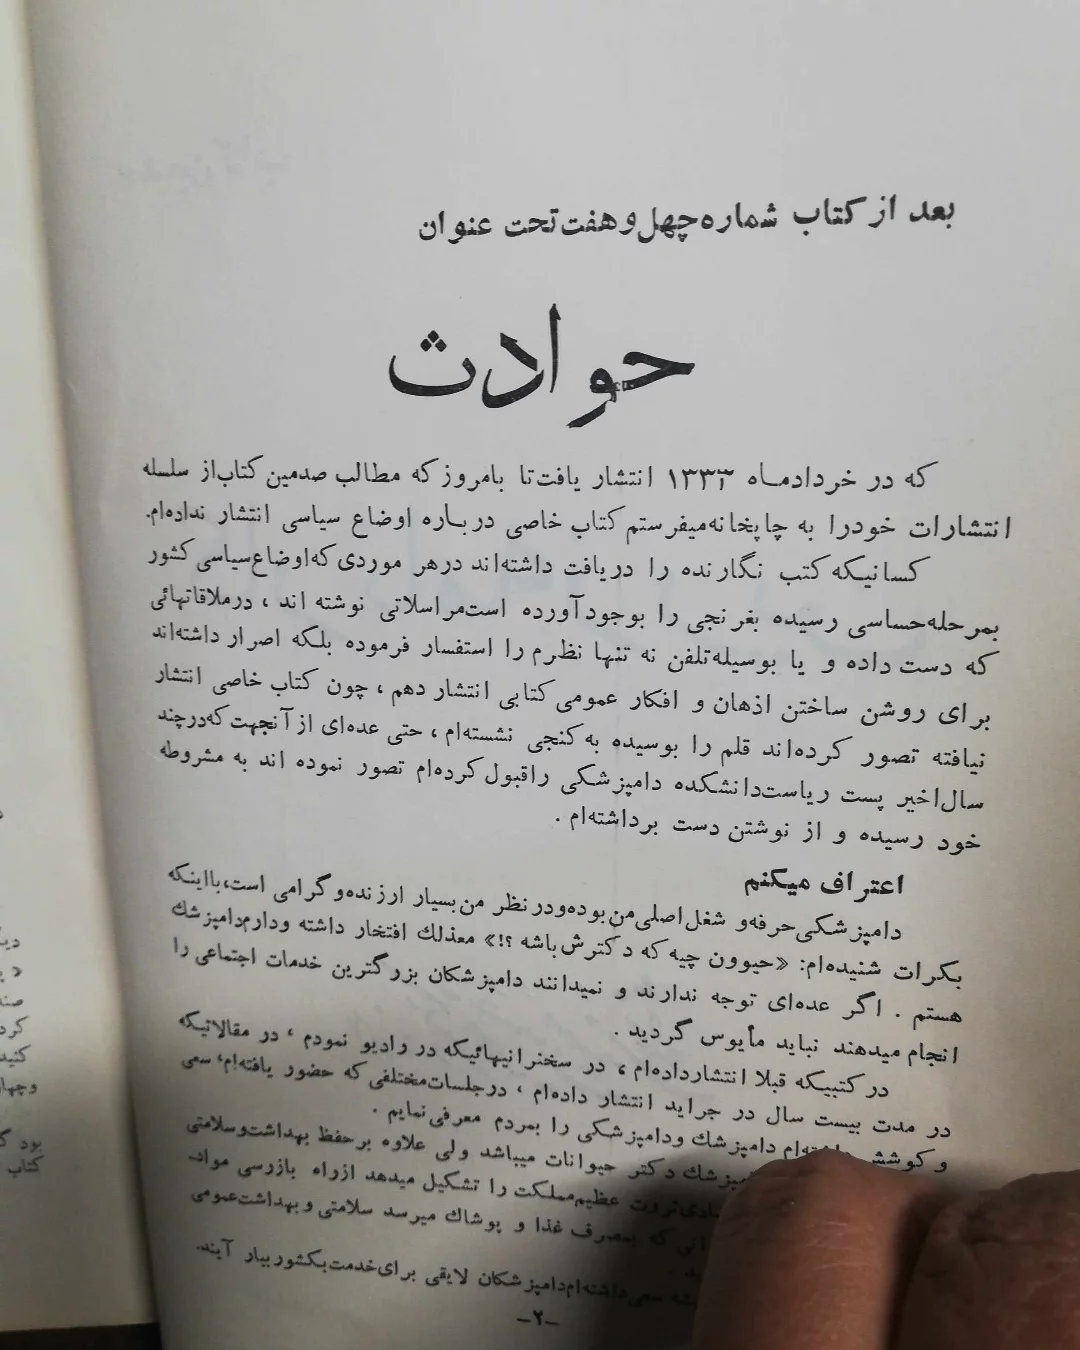 بعد از کتاب شماره چهل و هفت تحت عنوان
حوادث
که در خرداد ماه ۱۳۳۳ انتشار یافت تا بامروز که مطالب صدمین کتاب از سلسله
انتشارات خود را به چاپخانه میفرستم کتاب خاصی درباره اوضاع سیاسی انتشار نداده‌ام.
کسانیکه کتب نگارنده را دریافت داشته‌اند در هر موردی که اوضاع سیاسی کشور
بمرحله حساسی رسیده بغرنجی را بوجود آورده است مراسلاتی نوشته اند ، در ملاقاتهائی
که دست داده و یا بوسیله تلفن نه تنها نظرم را استفسار فرموده بلکه اصرار داشته‌اند
برای روشن ساختن اذهان و افکار عمومی کتابی انتشار دهم ، چون کتاب خاصی انتشار
نیافته تصور کرده‌اند قلم را بوسیده به کنجی نشسته‌ام ، حتی عده‌ای از آنجهت که در چند
سال اخیر پست ریاست دانشکده دامپزشکی را قبول کرده‌ام تصور نموده اند به مشروطه
خود رسیده و از نوشتن دست برداشته‌ام .
اعتراف میکنم
دامپزشکی حرفه و شغل اصلی من بوده و در نظر من بسیار ارزنده و گرامی است، با اینکه
بکرات شنیده‌ام: «حیوون چیه که دکترش باشه ؟!» معذلك افتخار داشته و دارم دامپزشك
هستم . اگر عده‌ای توجه ندارند و نمیدانند دامپزشکان بزرگترین خدمات اجتماعی را
انجام میدهند نباید مأیوس گردید .
در کتبیکه قبلا انتشار داده‌ام ، در سخنرانیهائیکه در رادیو نمودم ، در مقالاتیکه
در مدت بیست سال در جراید انتشار داده‌ام ، در جلسات مختلفی که حضور یافته‌ام، سعی
و کوشش داشته‌ام دامپزشك و دامپزشکی را بمردم معرفی نمایم .
دکتر حیوانات میباشد ولی علاوه بر حفظ بهداشت و سلامتی
ثروت عظیم مملکت را تشکیل میدهد از راه بازرسی مواد
که بمصرف غذا و پوشاك میرسد سلامتی و بهداشت عمومی
سعی داشته‌ام دامپزشکان لایقی برای خدمت بکشور ببار آیند.
-۲-